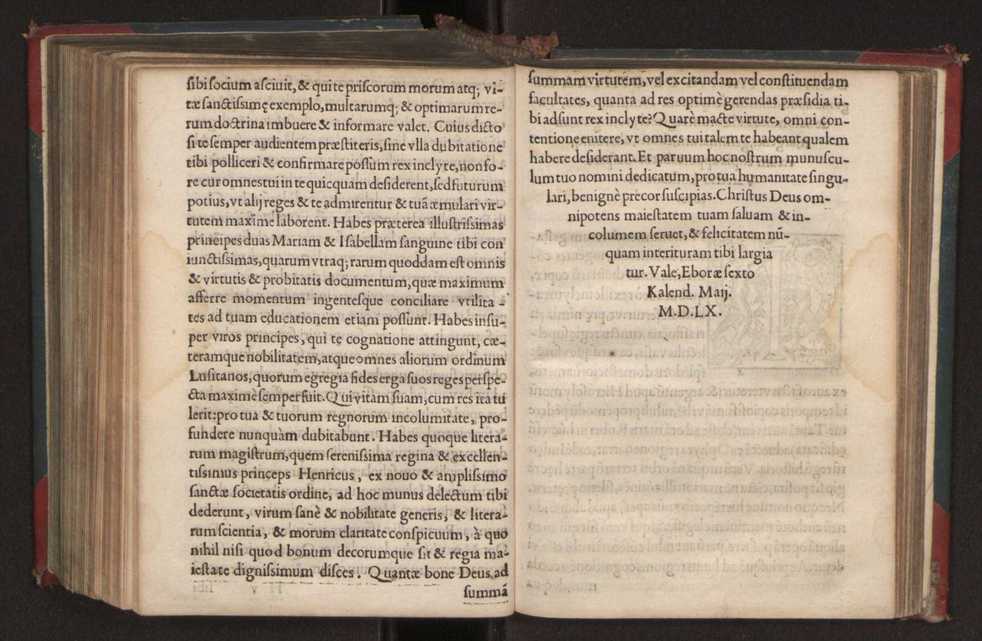 sibi socium asciuit, & qui te priscorum morum atq; vi-
tæ sanctissimę exemplo, multarumq; & optimarum re-
rum doctrina imbuere & informare valet. Cuius dicto
si te semper audientem præstiteris, sine vlla dubitatione
tibi polliceri & confirmare possum rex inclyte, non fo-
re cur omnes tui in te quicquàm desiderent, sed futurum
potius, vt alij reges & te admirentur & tuã æmulari vir-
tutem maximè laborent. Habes præterea illustrissimas
principes duas Mariam & Isabellam sanguine tibi con
iunctissimas, quarum vtraq; rarum quoddam est omnis
& virtutis & probitatis documentum, quæ maximum
afferre momentum ingentesque conciliare vtilita -
tes ad tuam educationem etiam possunt. Habes insu-
per viros principes, qui te cognatione attingunt, cæ-
teramque nobilitatem, atque omnes aliorum ordinum
Lusitanos, quorum egregia fides erga suos reges perspe-
cta maximè semper fuit. Qui vitam suam, cum res ita tu
lerit: pro tua & tuorum regnorum incolumitate, pro-
fundere nunquàm dubitabunt. Habes quoque litera-
rum magistrum, quem serenissima regina & excellen-
tissimus princeps Henricus, ex nouo & amplissimo
sanctæ societatis ordine, ad hoc munus delectum tibi
dederunt, virum sanè & nobilitate generis, & litera-
rum scientia, & morum claritate conspicuum, à quo
nihil nisi quod bonum decorumque sit & regia ma-
iestate dignissimum disces. Quantæ bone Deus, ad
summã
summam virtutem, vel excitandam vel constituendam
facultates, quanta ad res optimè gerendas præsidia ti-
bi adsunt rex inclyte? Quarè macte virtute, omni con-
tentione enitere, vt omnes tui talem te habeant qualem
habere desiderant. Et paruum hoc nostrum munuscu-
lum tuo nomini dedicatum, pro tua humanitate singu-
lari, benignè precor suscipias. Christus Deus om-
nipotens maiestatem tuam saluam & in-
columem seruet, & felicitatem nũ-
quam interituram tibi largia
tur. Vale, Eboræ sexto
Kalend. Maij.
M.D.LX.